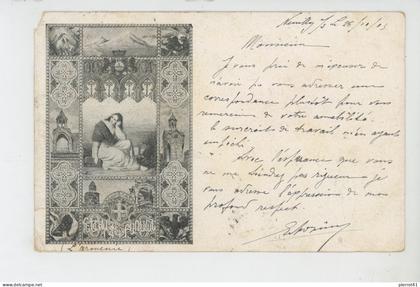 Neuilly s/s Le 26/10/03
Monsieur
Je vous prie de m'excuser de
n'avoir pu vous adresser une
correspondance plutôt pour vous
remercier de votre amabilité.
le surcroît de travail m'en ayant
empêché
Avec l'espérance que vous
ne me tiendez pas rigueur je
vous adresse l'expression de mon
profond respect.
(L'armenie)